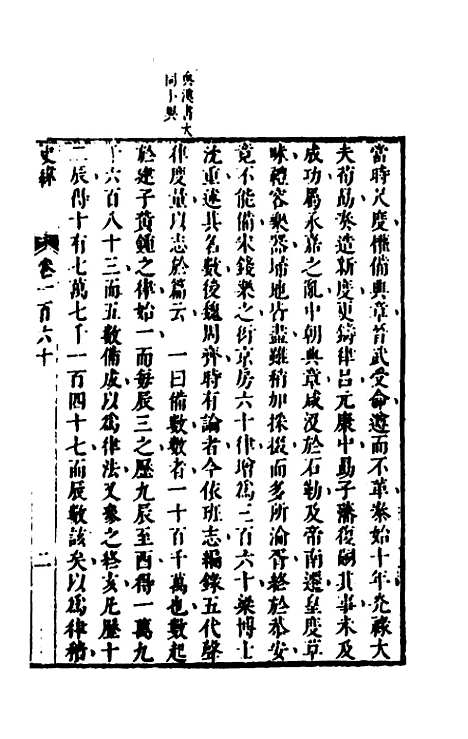 當時尺度惟備典章晉武受命遵而不革泰始十年光祿大
夫荀勗奏造新度更鑄律呂元康中勗子藩復嗣其事未及
成功屬永嘉之亂中朝典章咸沒於石勒及帝南遷皇度草
昧禮容樂器埽地皆盡雖稍加採掇而多所淪胥終於恭安
竟不能備宋錢樂之衍京房六十律增爲三百六十梁博士
沈重述其名數後魏周齊時有論者今依班志編錄五代聲
律度量以志於篇云　一曰備數數者一十百千萬也數起
於建子黃鍾之律始一而每辰三之歷九辰至酉得一萬九
千六百八十三而五數備成以爲律法又參之終亥凡歷十
二辰得十有七萬七千一百四十七而辰數該矣以爲律積
與漢書大
同小異
史緯
卷一百六十
二